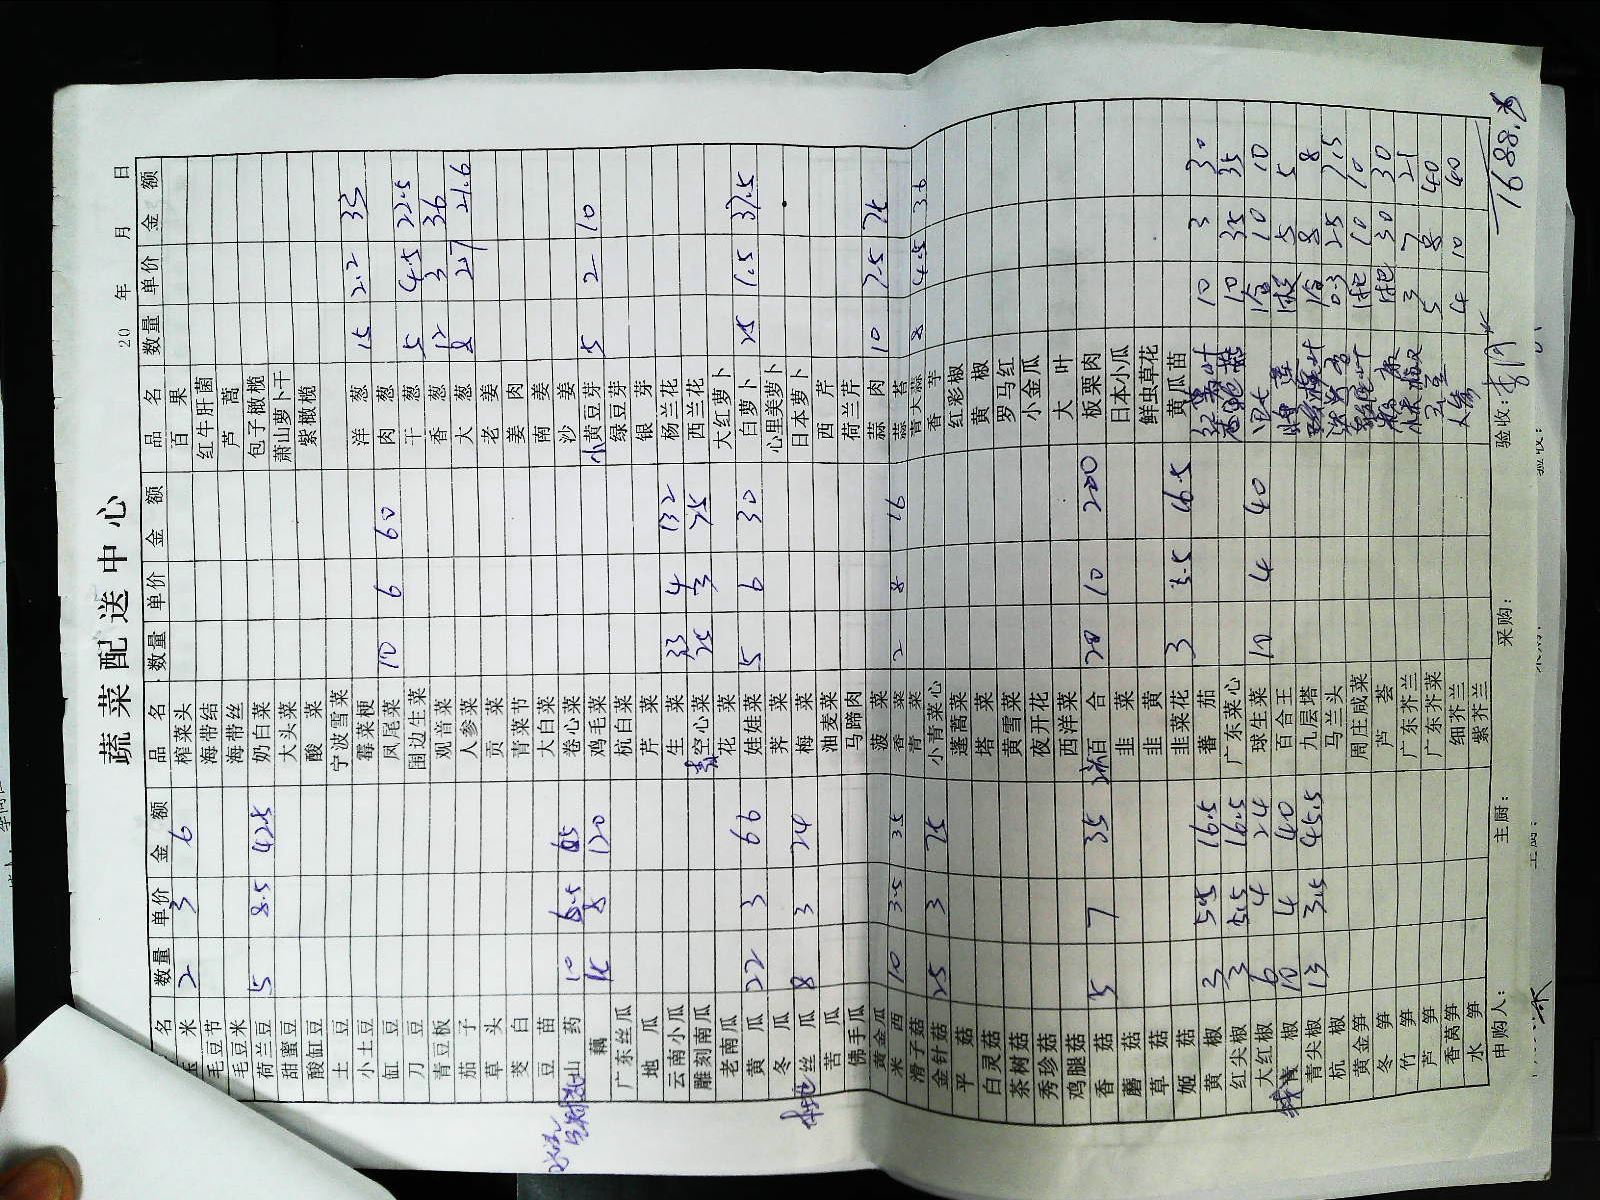 蔬菜配送中心
20 年 月 日
名 数量 单价 金额 品名 数量 单价 金额 品名 数量 单价 金额
玉米 2 3 6 榨菜头 百果
毛豆节 海带结 红牛肝菌
毛豆米 海带丝 芦蒿
荷兰豆 5 8.5 42.5 奶白菜 包子橄榄
甜蜜豆 大头菜 萧山萝卜干
酸缸豆 酸菜 紫橄榄
土豆 宁波雪菜
小土豆 霉菜梗 洋葱 15 2.2 33
缸豆 凤尾菜 10 6 60 肉葱
刀豆 围边生菜 干葱 5 4.5 22.5
青豆板 观音菜 香葱 12 3 36
茄子 人参菜 大葱 8 2.7 21.6
草头 贡菜 老姜
茭白 青菜节 姜肉
豆苗 大白菜 南姜
山药 10 6.5 65 卷心菜 沙姜
藕 15 8 120 鸡毛菜 小黄豆芽 5 2 10
广东丝瓜 杭白菜 绿豆芽
地瓜 芹菜 银芽
云南小瓜 生菜 33 4 132 杨兰花
雕刻南瓜 空心菜 25 3 75 西兰花
老南瓜 花菜 大红萝卜
黄瓜 22 3 66 娃娃菜 5 6 30 白萝卜 25 1.5 37.5
冬瓜 荠菜 心里美萝卜
本地丝瓜 8 3 24 梅菜 日本萝卜
苦瓜 油麦菜 西芹
佛手瓜 马蹄肉 荷兰芹
黄金瓜 菠菜 蒜肉 10 7.5 75
米西 10 3.5 35 香菜 2 8 16 蒜苔
滑子菇 青菜 青大蒜 8 4.5 36
金针菇 25 3 75 小青菜心 香芋
平菇 蓬蒿菜 红彩椒
白灵菇 塔菜 黄椒
茶树菇 黄雪菜 罗马红
秀珍菇 夜开花 小金瓜
鸡腿菇 西洋菜 大叶
香菇 5 7 35 百合 20 10 200 板栗肉
蘑菇 韭菜 日本小瓜
草菇 韭黄 鲜虫草花
姬菇 韭菜花 3 5.5 16.5 黄瓜苗
黄椒 3 5.5 16.5 蕃茄 10 3 30
红尖椒 3 5.5 16.5 广东菜心 10 3.5 35
大红椒 6 4 24 球生菜 10 4 40 1合 10 10
青椒 10 4 40 百合王 5 5
青尖椒 13 3.5 45.5 九层塔 1合 8 8
杭椒 马兰头 0.3 25 7.5
黄金笋 周庄咸菜 1把 10 10
冬笋 芦荟 1把 30 30
竹笋 广东芥兰 3 7 21
芦笋 广东芥菜 5 8 40
香莴笋 细芥兰 4 10 40
水笋 紫芥兰
申购人： 主厨： 采购： 验收：